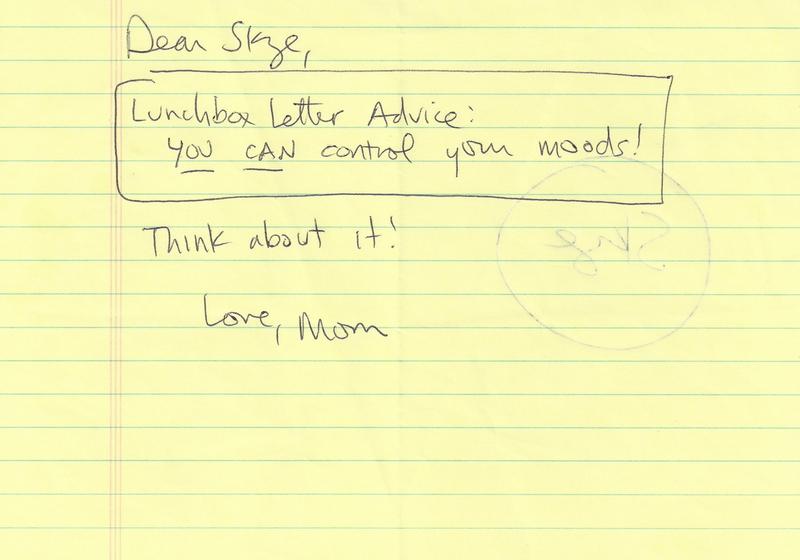 Dear Skye,
Lunchbox Letter Advice:
YOU CAN control your moods!
Think about it!
Love, Mom
Skye